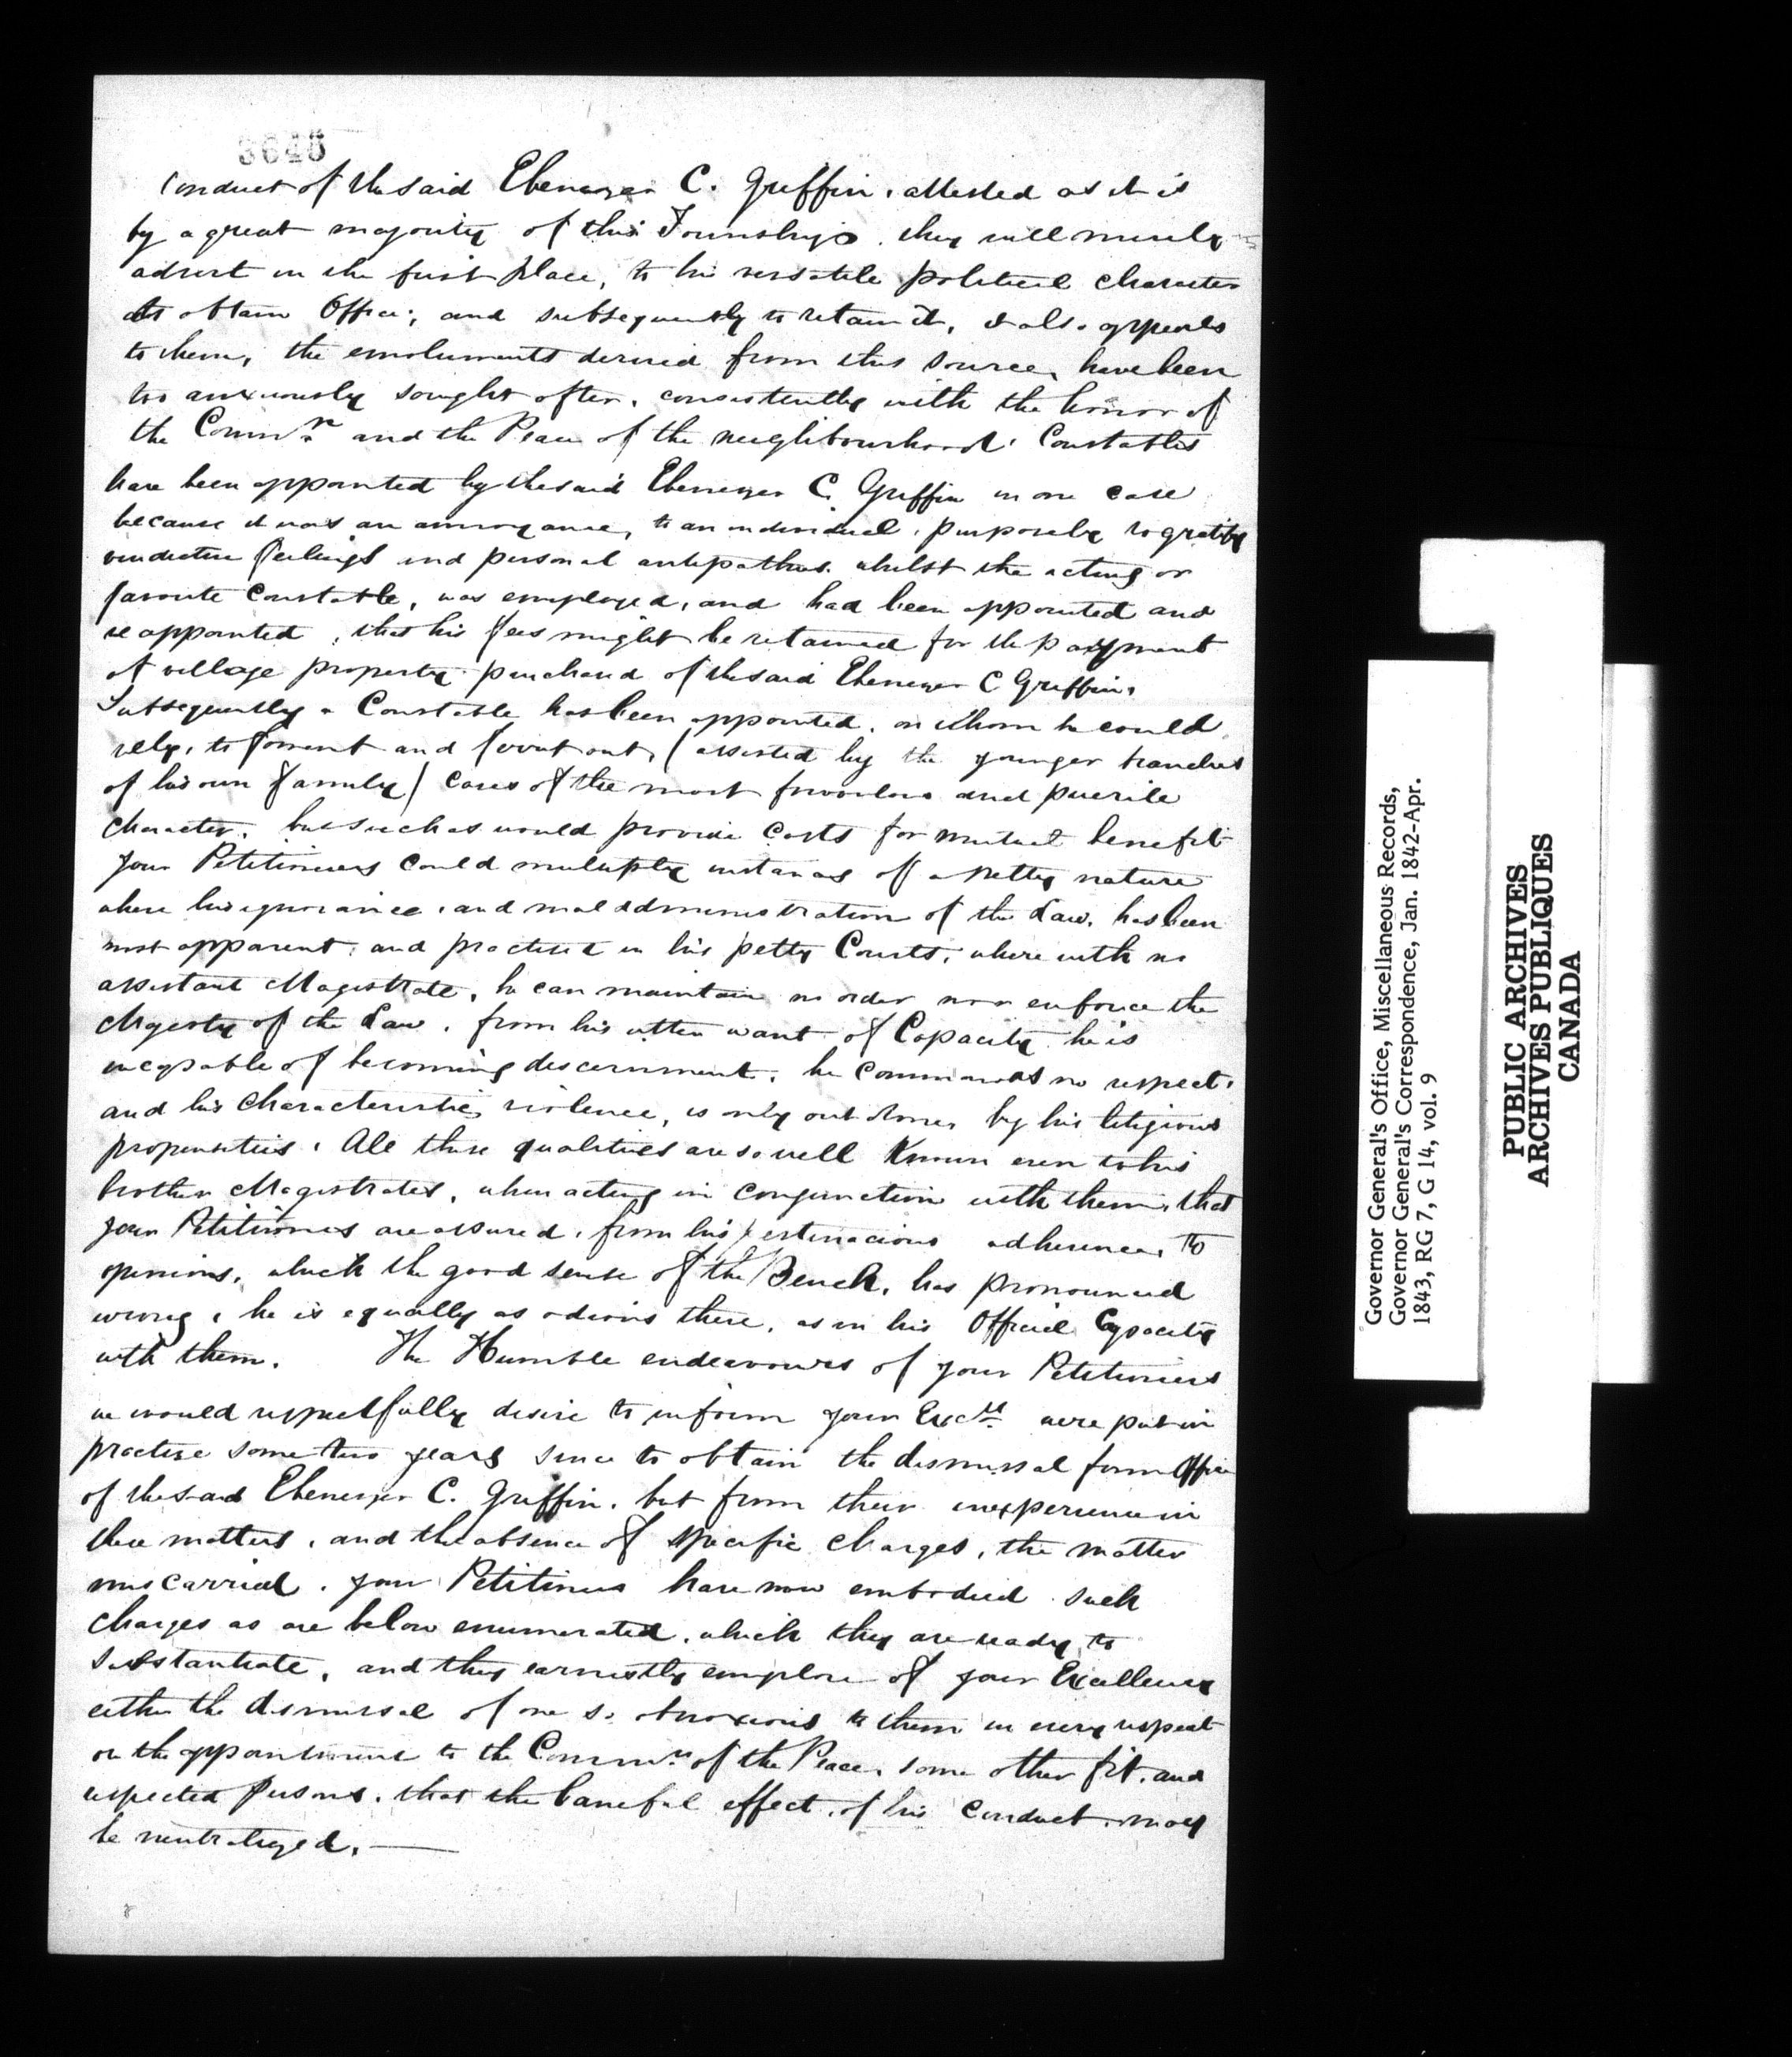 3645
Conduct of the said Ebenezer C. Griffin, attested as it is
by a great majority of this Township, they will merely
advert in the first place, to his versatile political character
to obtain Office; and subsequently to retain it, it also appears
to them, the emoluments derived from this source, have been
too anxiously sought after, consistently with the honor of
the Commn. and the Peace of the neighbourhood. Constables
have been appointed by the said Ebenezer C. Griffin in one case
because it was an annoyance, to an individual, purposely to gratify
vindictive feelings and personal antipathies whilst the acting or
favorite Constable, was employed, and had been appointed and
re appointed, that his fees might be retained for the payment
of village property purchased of the said Ebenezer C Griffin,
Subsequently a Constable has been appointed, on whom he could
rely, to foment and ferret out, (assisted by the younger branches
of his own family) cases of the most frivolous and puerile
character, but such as would provide costs for mutual benefit
Your Petitioners could multiply instances of a petty nature
where his ignorance, and maladministration of the Law, has been
most apparent, and practised in his petty Courts, where with no
assistant Magistrate, he can maintain no order nor enforce the
Majesty of the Law, from his utter want of Capacity he is
incapable of becoming discernment, he commands no respect,
and his characteristic violence, is only outdone, by his litigious
propensities. All these qualities are so well known even to his
brother Magistrates, when acting in conjunction with them, that
your Petitioners are assured, from his pertinacious adherence, to
opinions, which the good sense of the Bench, has pronounced
wrong, he is equally as odious there, as in his Official Capacity
with them. The Humble endeavours of your Petitioners
we would respectfully desire to inform your Excy. were put in
practise some two years since to obtain the dismissal from Office
of the said Ebenezer C. Griffin, but from their inexperience in
these matters, and the absence of specific charges, the matter
miscarried. Your Petitioners have now embodied such
charges as are below enumerated, which they are ready to
substantiate, and they earnestly emplore of your Excellency
either the dismissal of one so obnoxious to them in every respect
or the appointment to the Commn. of the Peace, some other fit, and
respected persons, that the baneful effect, of his conduct, may
be neutralized.
Governor General's Office, Miscellaneous Records,
Governor General's Correspondence, Jan. 1842-Apr.
1843, RG 7, G 14, vol. 9
PUBLIC ARCHIVES
ARCHIVES PUBLIQUES
CANADA